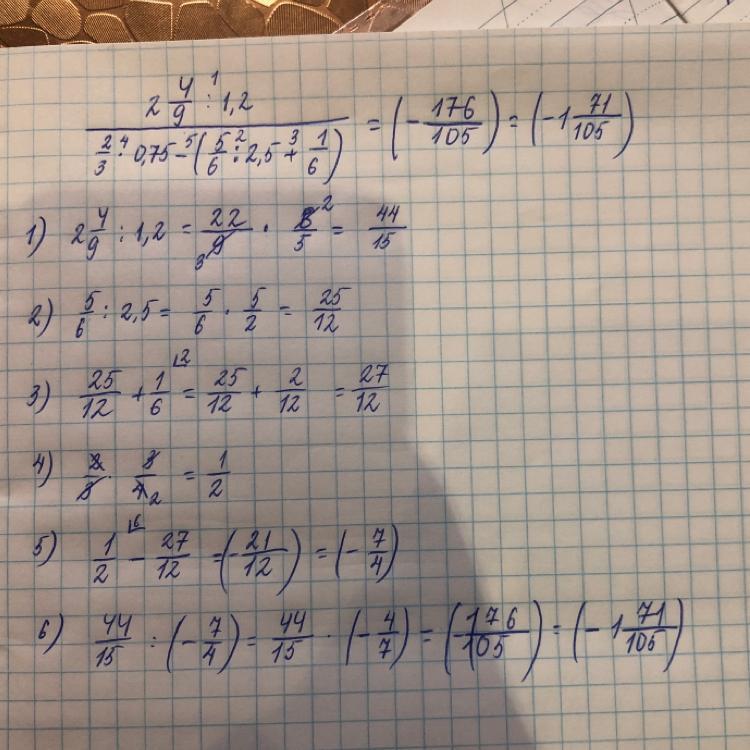 2 4/9 :¹ 1,2
2/3 ·⁴ 0,75 -⁵ (5/6 :² 2,5 +³ 1/6) = (- 176/105) = (-1 71/105)
1) 2 4/9 : 1,2 = 22/9 3 · 6/5 2 = 44/15
2) 5/6 : 2,5 = 5/6 · 5/2 = 25/12
3) 25/12 + 1/6 ⌊2 = 25/12 + 2/12 = 27/12
4) 2/3 · 3/4 2 = 1/2
5) 1/2 ⌊6 - 27/12 = (- 21/12) = (- 7/4)
6) 44/15 : (- 7/4) = 44/15 · (- 4/7) = (176/105) = (- 1 71/105)